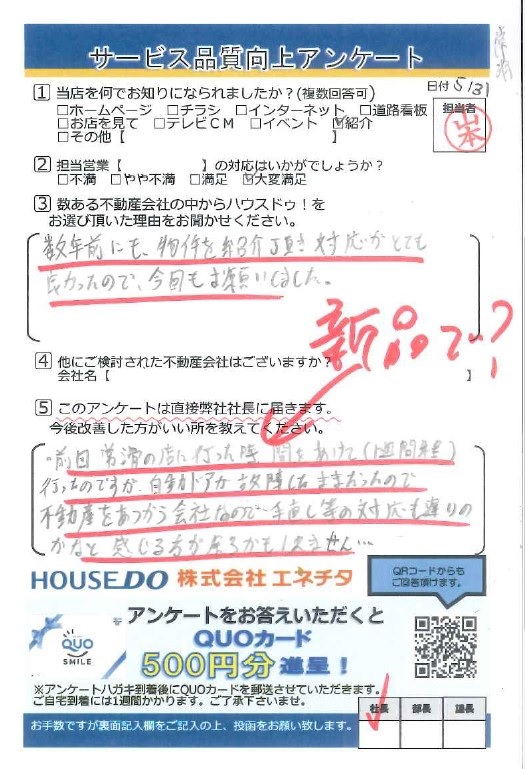 常滑
サービス品質向上アンケート
日付 5/31
1 当店を何でお知りになられましたか？(複数回答可)
□ホームページ □チラシ □インターネット □道路看板
□お店を見て □テレビCM □イベント ☑紹介
□その他【 】
担当者
山本
2 担当営業【 】の対応はいかがでしょうか？
□不満 □やや不満 □満足 ☑大変満足
3 数ある不動産会社の中からハウスドゥ！を
お選び頂いた理由をお聞かせください。
数年前にも、物件を紹介頂き対応がとても
良かったので、今回もお願いしました。
新品で
4 他にご検討された不動産会社はございますか？
会社名【 】
5 このアンケートは直接弊社社長に届きます。
今後改善した方がいい所を教えてください。
・前回常滑の店に行った時、間をあけて(1週間程)
行ったのですが、自動ドアが故障したままだったので
不動産をあつかう会社なので手直し等の対応も遅いの
かなと感じる方が来るかもしれません…
HOUSEDO 株式会社 エネチタ
QRコードからも
ご回答頂けます。
アンケートをお答えいただくと
QUOカード
500円分進呈！
QUO
SMILE
※アンケートハガキ到着後にQUOカードを郵送させていただきます。
ご自宅到着には1週間かかります。ご了承下さいませ。
社長 部長 課長
お手数ですが裏面記入欄をご記入の上、投函をお願い致します。